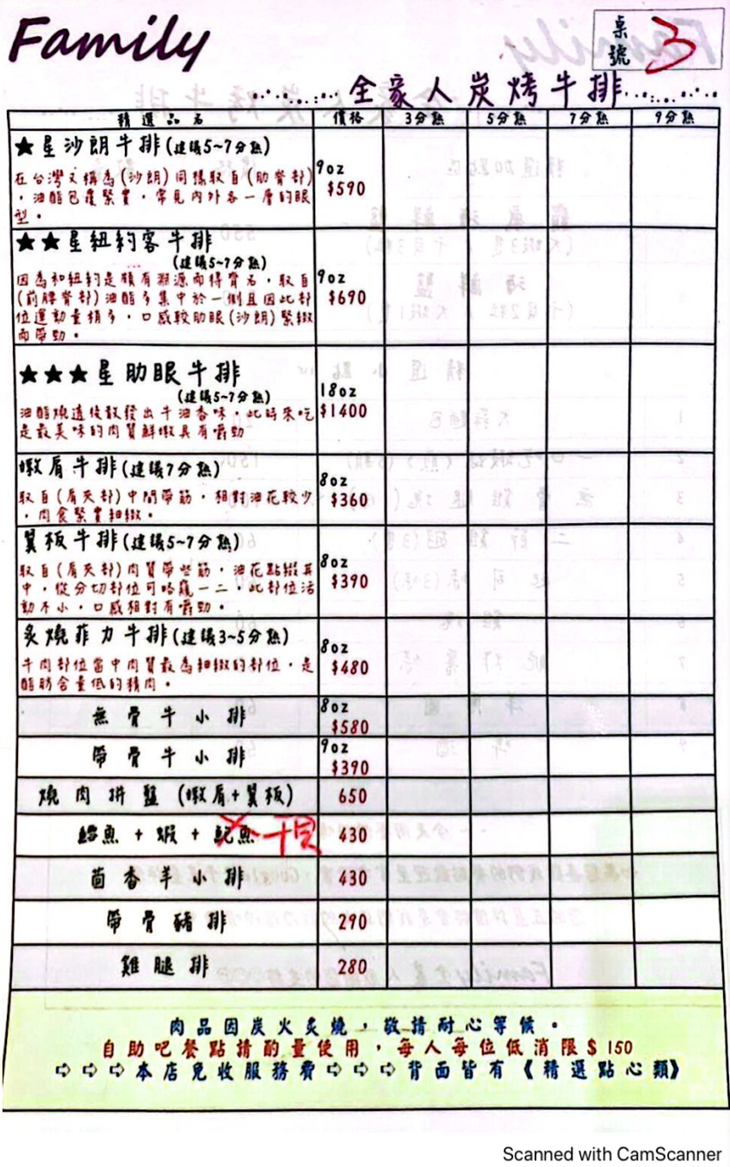 Family
桌號 3
全家人炭烤牛排
精選品名 價格 3分熟 5分熟 7分熟 9分熟
★星沙朗牛排(建議5~7分熟)
9oz
$590
在台灣又稱為(沙朗)同樣取自(肋脊部)
，油脂包覆緊實，常見內外各一層的眼
型。
★★星紐約客牛排
(建議5~7分熟)
9oz
$690
因為和紐約是頗有淵源而得寶名，取自
(前腰脊部)油脂多集中於一側且因此部
位運動量稍多，口感較肋眼(沙朗)緊緻
而帶勁。
★★★星肋眼牛排
(建議5~7分熟)
18oz
$1400
油脂燒透後散發出牛油香味，此時來吃
是最美味的肉質鮮嫩具有嚼勁
嫩肩牛排(建議7分熟)
8oz
$360
取自(肩夾部)中間帶筋，相對油花較少
，肉食緊實細緻。
翼板牛排(建議5~7分熟)
8oz
$390
取自(肩夾部)肉質帶些筋，油花點綴其
中，從分切部位可略窺一二，此部位活
動不小，口感相對有嚼勁。
炙燒菲力牛排(建議3~5分熟)
8oz
$480
牛肉部位當中肉質最為細緻的部位，是
脂肪含量低的精肉。
無骨牛小排 8oz $580
帶骨牛小排 9oz $390
燒肉拼盤(嫩肩+翼板) 650
鱈魚+蝦+魷魚 干貝 430
茴香羊小排 430
帶骨豬排 290
雞腿排 280
肉品因炭火炙燒，敬請耐心等候。
自助吧餐點請酌量使用，每人每位低消限$150
⇨⇨⇨本店免收服務費⇨⇨⇨背面皆有《精選點心類》
Scanned with CamScanner